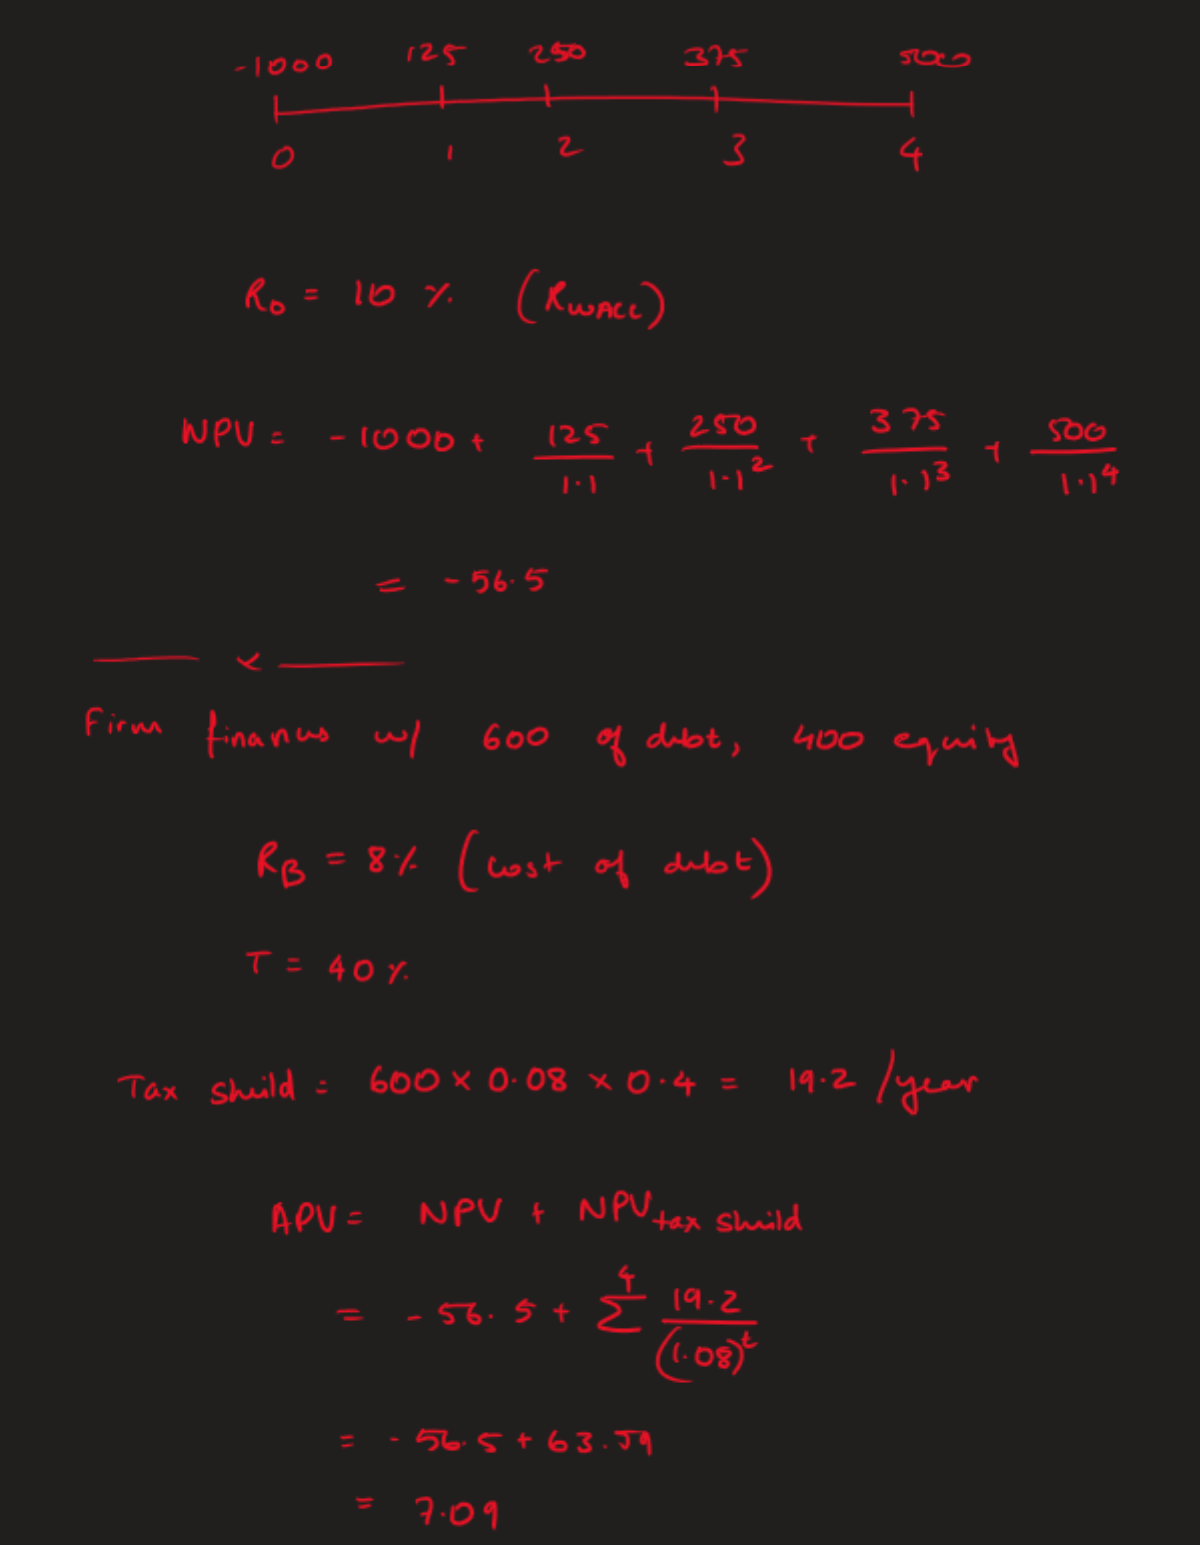 -1000 125 250 375 5000
0 1 2 3 4
R₀ = 10 % (R_WACC)
NPV = -1000 + 125/1.1 + 250/1.1² + 375/1.1³ + 500/1.1⁴
= -56.5
x
Firm finances w/ 600 of debt, 400 equity
R_B = 8% (cost of debt)
T = 40 %
Tax shield = 600 × 0.08 × 0.4 = 19.2 /year
APV = NPV + NPV_tax shield
= -56.5 + Σ⁴ 19.2/(1.08)ᵗ
= -56.5 + 63.59
= 7.09